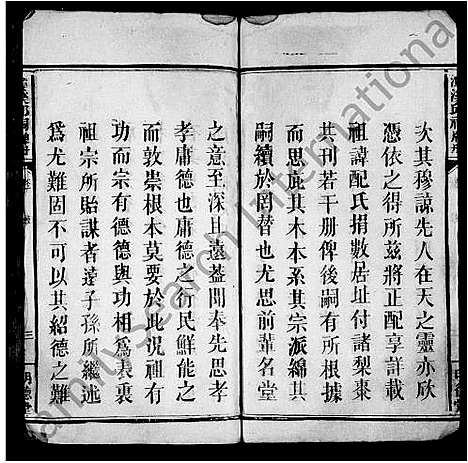 次其穆諒先人在天之靈亦欣
憑依之得所茲將正配享詳載
祖諱配氏捐數居址付諸梨棗
共刊若干册俾後嗣有所根據
而思庇其木本系其宗派綿其
嗣續於罔替也尤思前輩名堂
之意至深且遠蓋聞奉先思孝
孝庸德也庸德之行民鮮能之
而敦崇根本莫要於此況祖有
功而宗有德德與功相為表裏
祖宗所貽謀者遠子孫所繼述
為尤難固不可以其紹德之難
三
明德堂
FamilySearch International